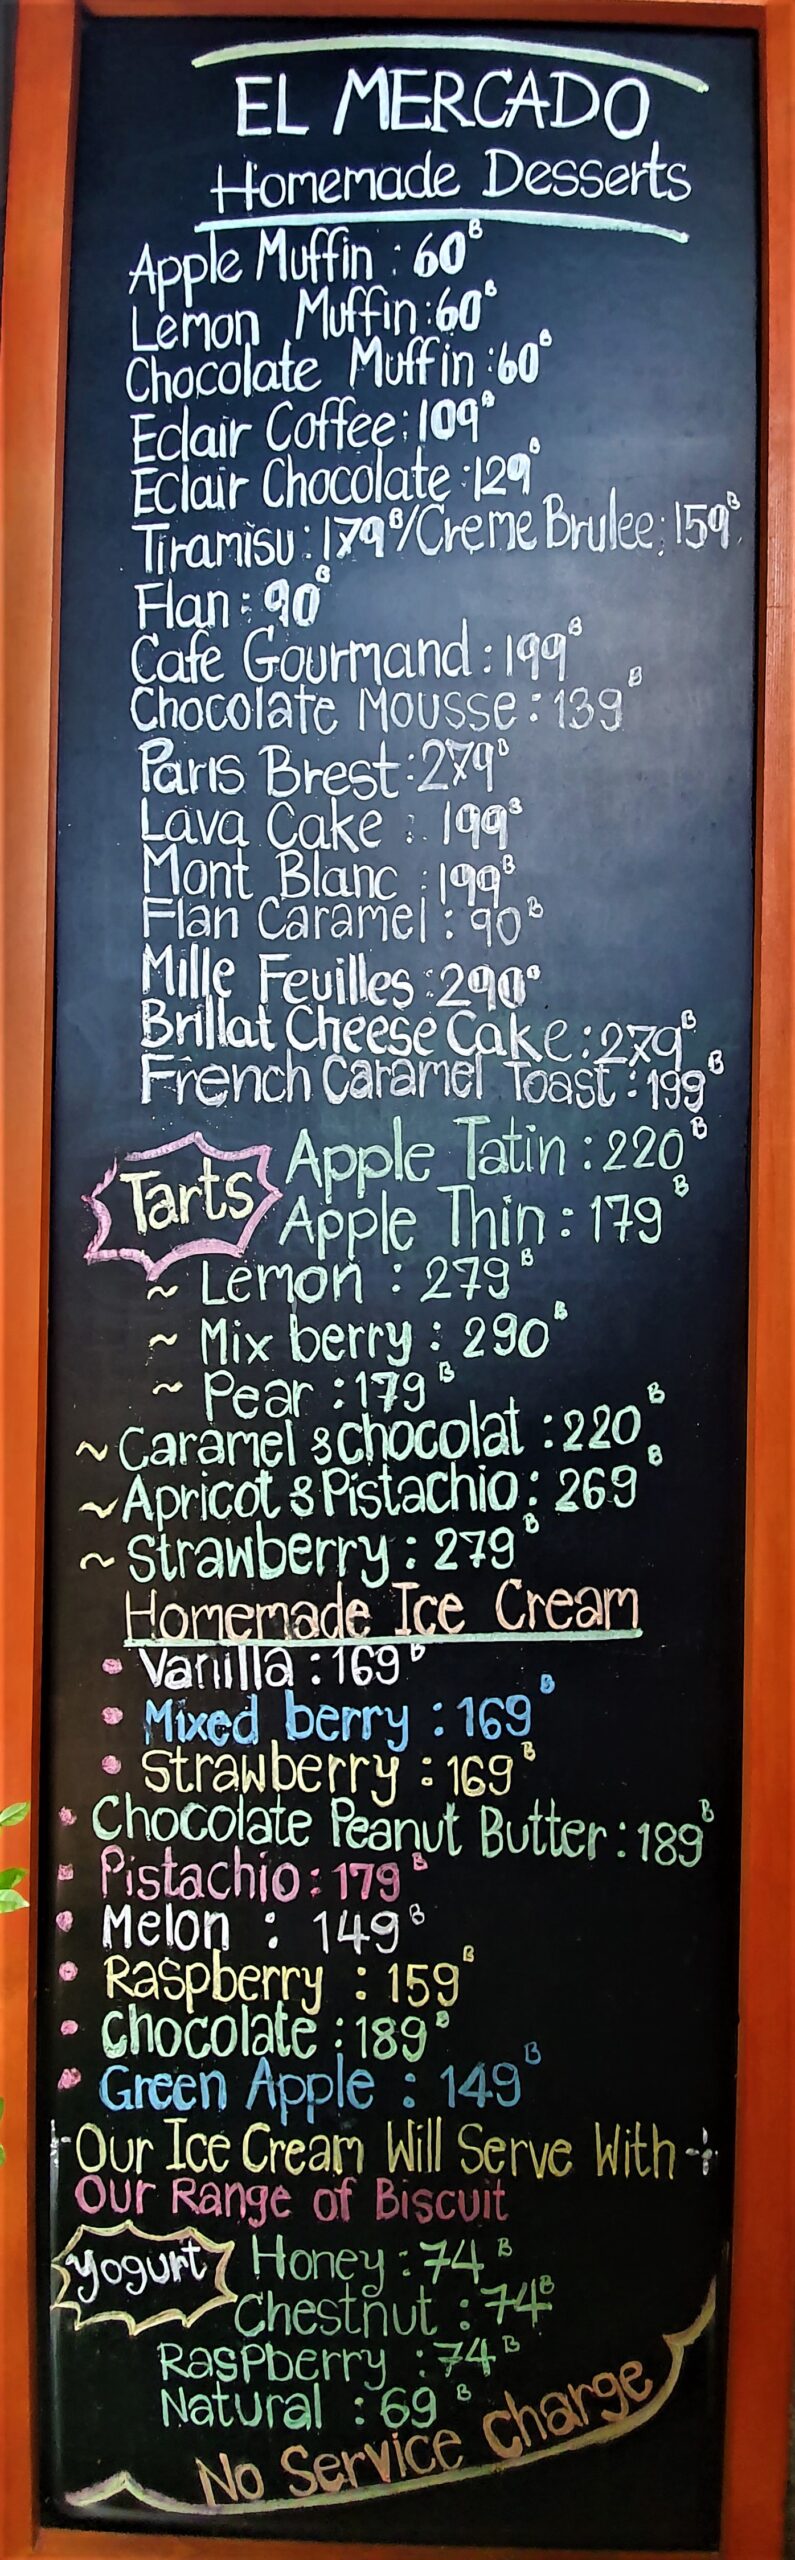 EL MERCADO
Homemade Desserts
Apple Muffin : 60B
Lemon Muffin : 60B
Chocolate Muffin : 60B
Eclair Coffee : 109B
Eclair Chocolate : 129B
Tiramisu : 179B / Creme Brulee : 159B
Flan : 90B
Cafe Gourmand : 199B
Chocolate Mousse : 139B
Paris Brest : 279B
Lava Cake : 199B
Mont Blanc : 199B
Flan Caramel : 90B
Mille Feuilles : 290B
Brillat Cheese Cake : 279B
French Caramel Toast : 199B
Tarts
Apple Tatin : 220B
Apple Thin : 179B
~ Lemon : 279B
~ Mix berry : 290B
~ Pear : 179B
~ Caramel & chocolat : 220B
~ Apricot & Pistachio : 269B
~ Strawberry : 279B
Homemade Ice Cream
• Vanilla : 169B
• Mixed berry : 169B
• Strawberry : 169B
• Chocolate Peanut Butter : 189B
• Pistachio : 179B
• Melon : 149B
• Raspberry : 159B
• Chocolate : 189B
• Green Apple : 149B
Our Ice Cream Will Serve With
Our Range of Biscuit
Yogurt
Honey : 74B
Chestnut : 74B
Raspberry : 74B
Natural : 69B
No Service Charge